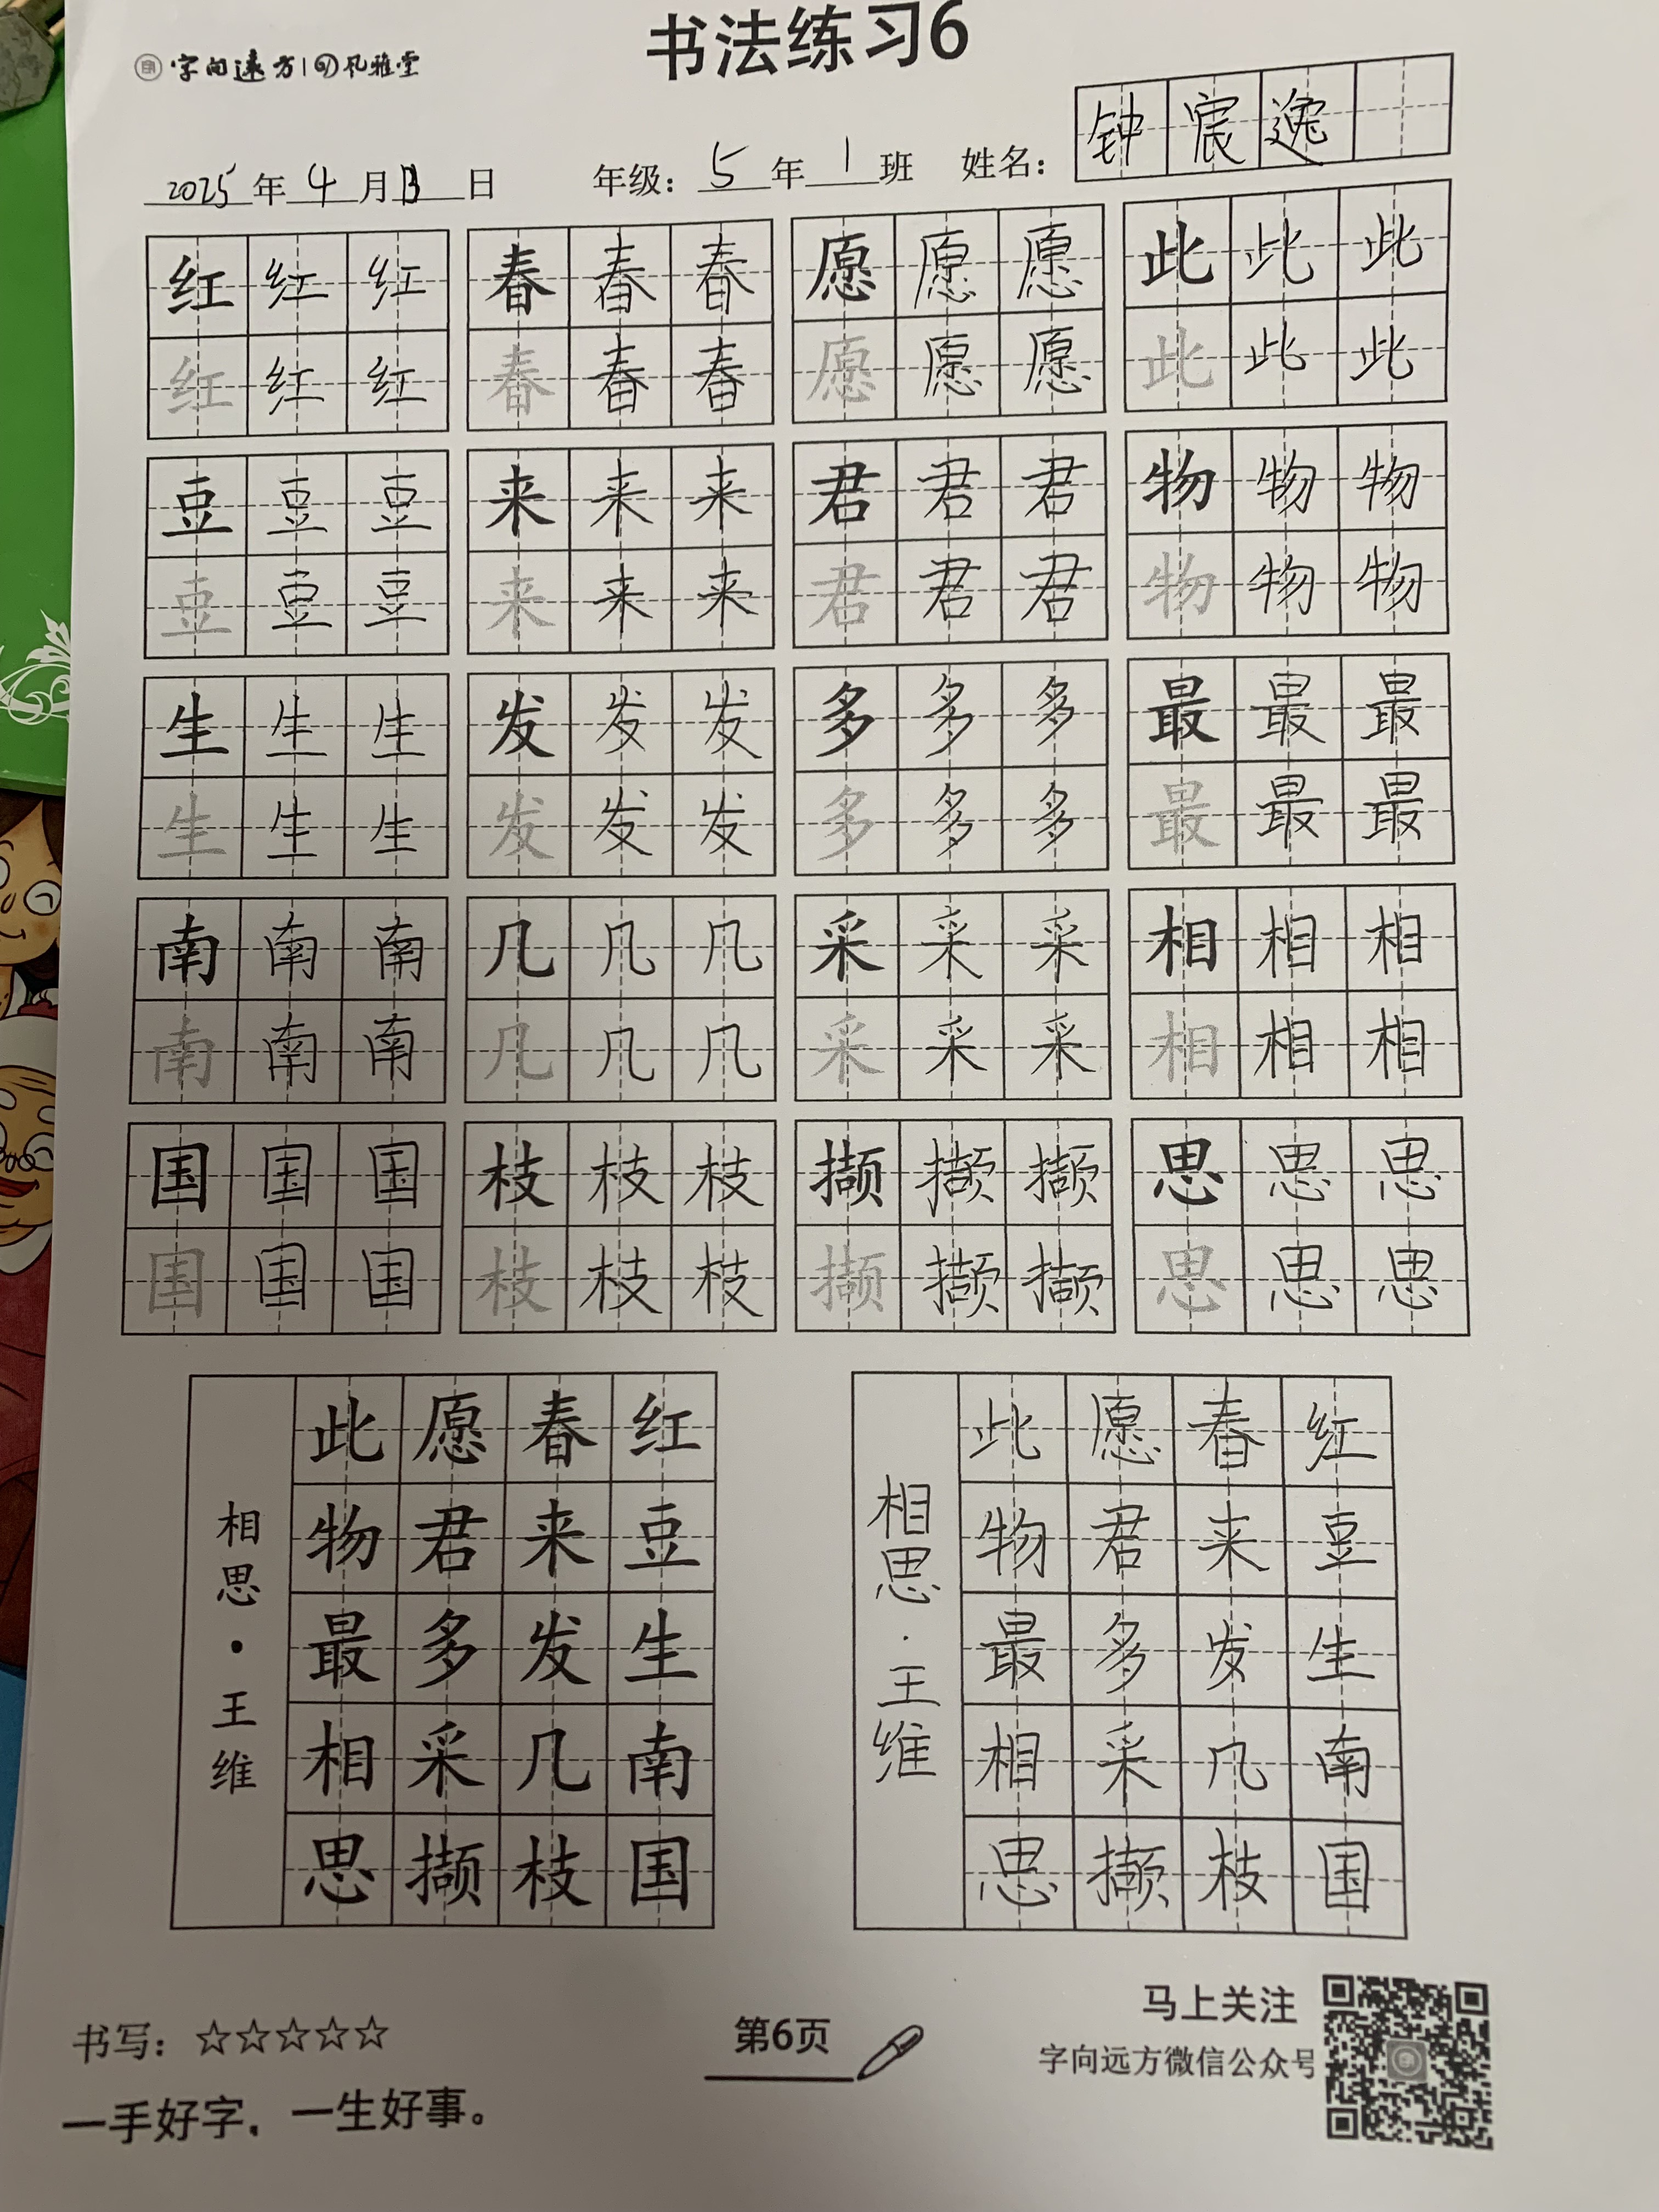 书法练习6
字向远方|风雅堂
2025年4月13日 年级：5年1班 姓名：钟宸逸
红红红 春春春 愿愿愿 此此此
红红红 春春春 愿愿愿 此此此
豆豆豆 来来来 君君君 物物物
豆豆豆 来来来 君君君 物物物
生生生 发发发 多多多 最最最
生生生 发发发 多多多 最最最
南南南 几几几 采采采 相相相
南南南 几几几 采采采 相相相
国国国 枝枝枝 撷撷撷 思思思
国国国 枝枝枝 撷撷撷 思思思
红豆生南国
春来发几枝
愿君多采撷
此物最相思
相思·王维
红豆生南国
春来发几枝
愿君多采撷
此物最相思
相思·王维
书写：☆☆☆☆☆
一手好字，一生好事。
第6页
马上关注
字向远方微信公众号